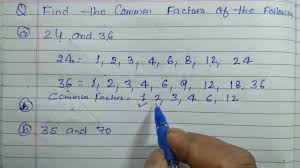 Q Find the Common Factors of the Following
(a) 24 and 36
24 = 1, 2, 3, 4, 6, 8, 12, 24
36 = 1, 2, 3, 4, 6, 9, 12, 18, 36
Common Factors = 1, 2, 3, 4, 6, 12
(b) 35 and 70